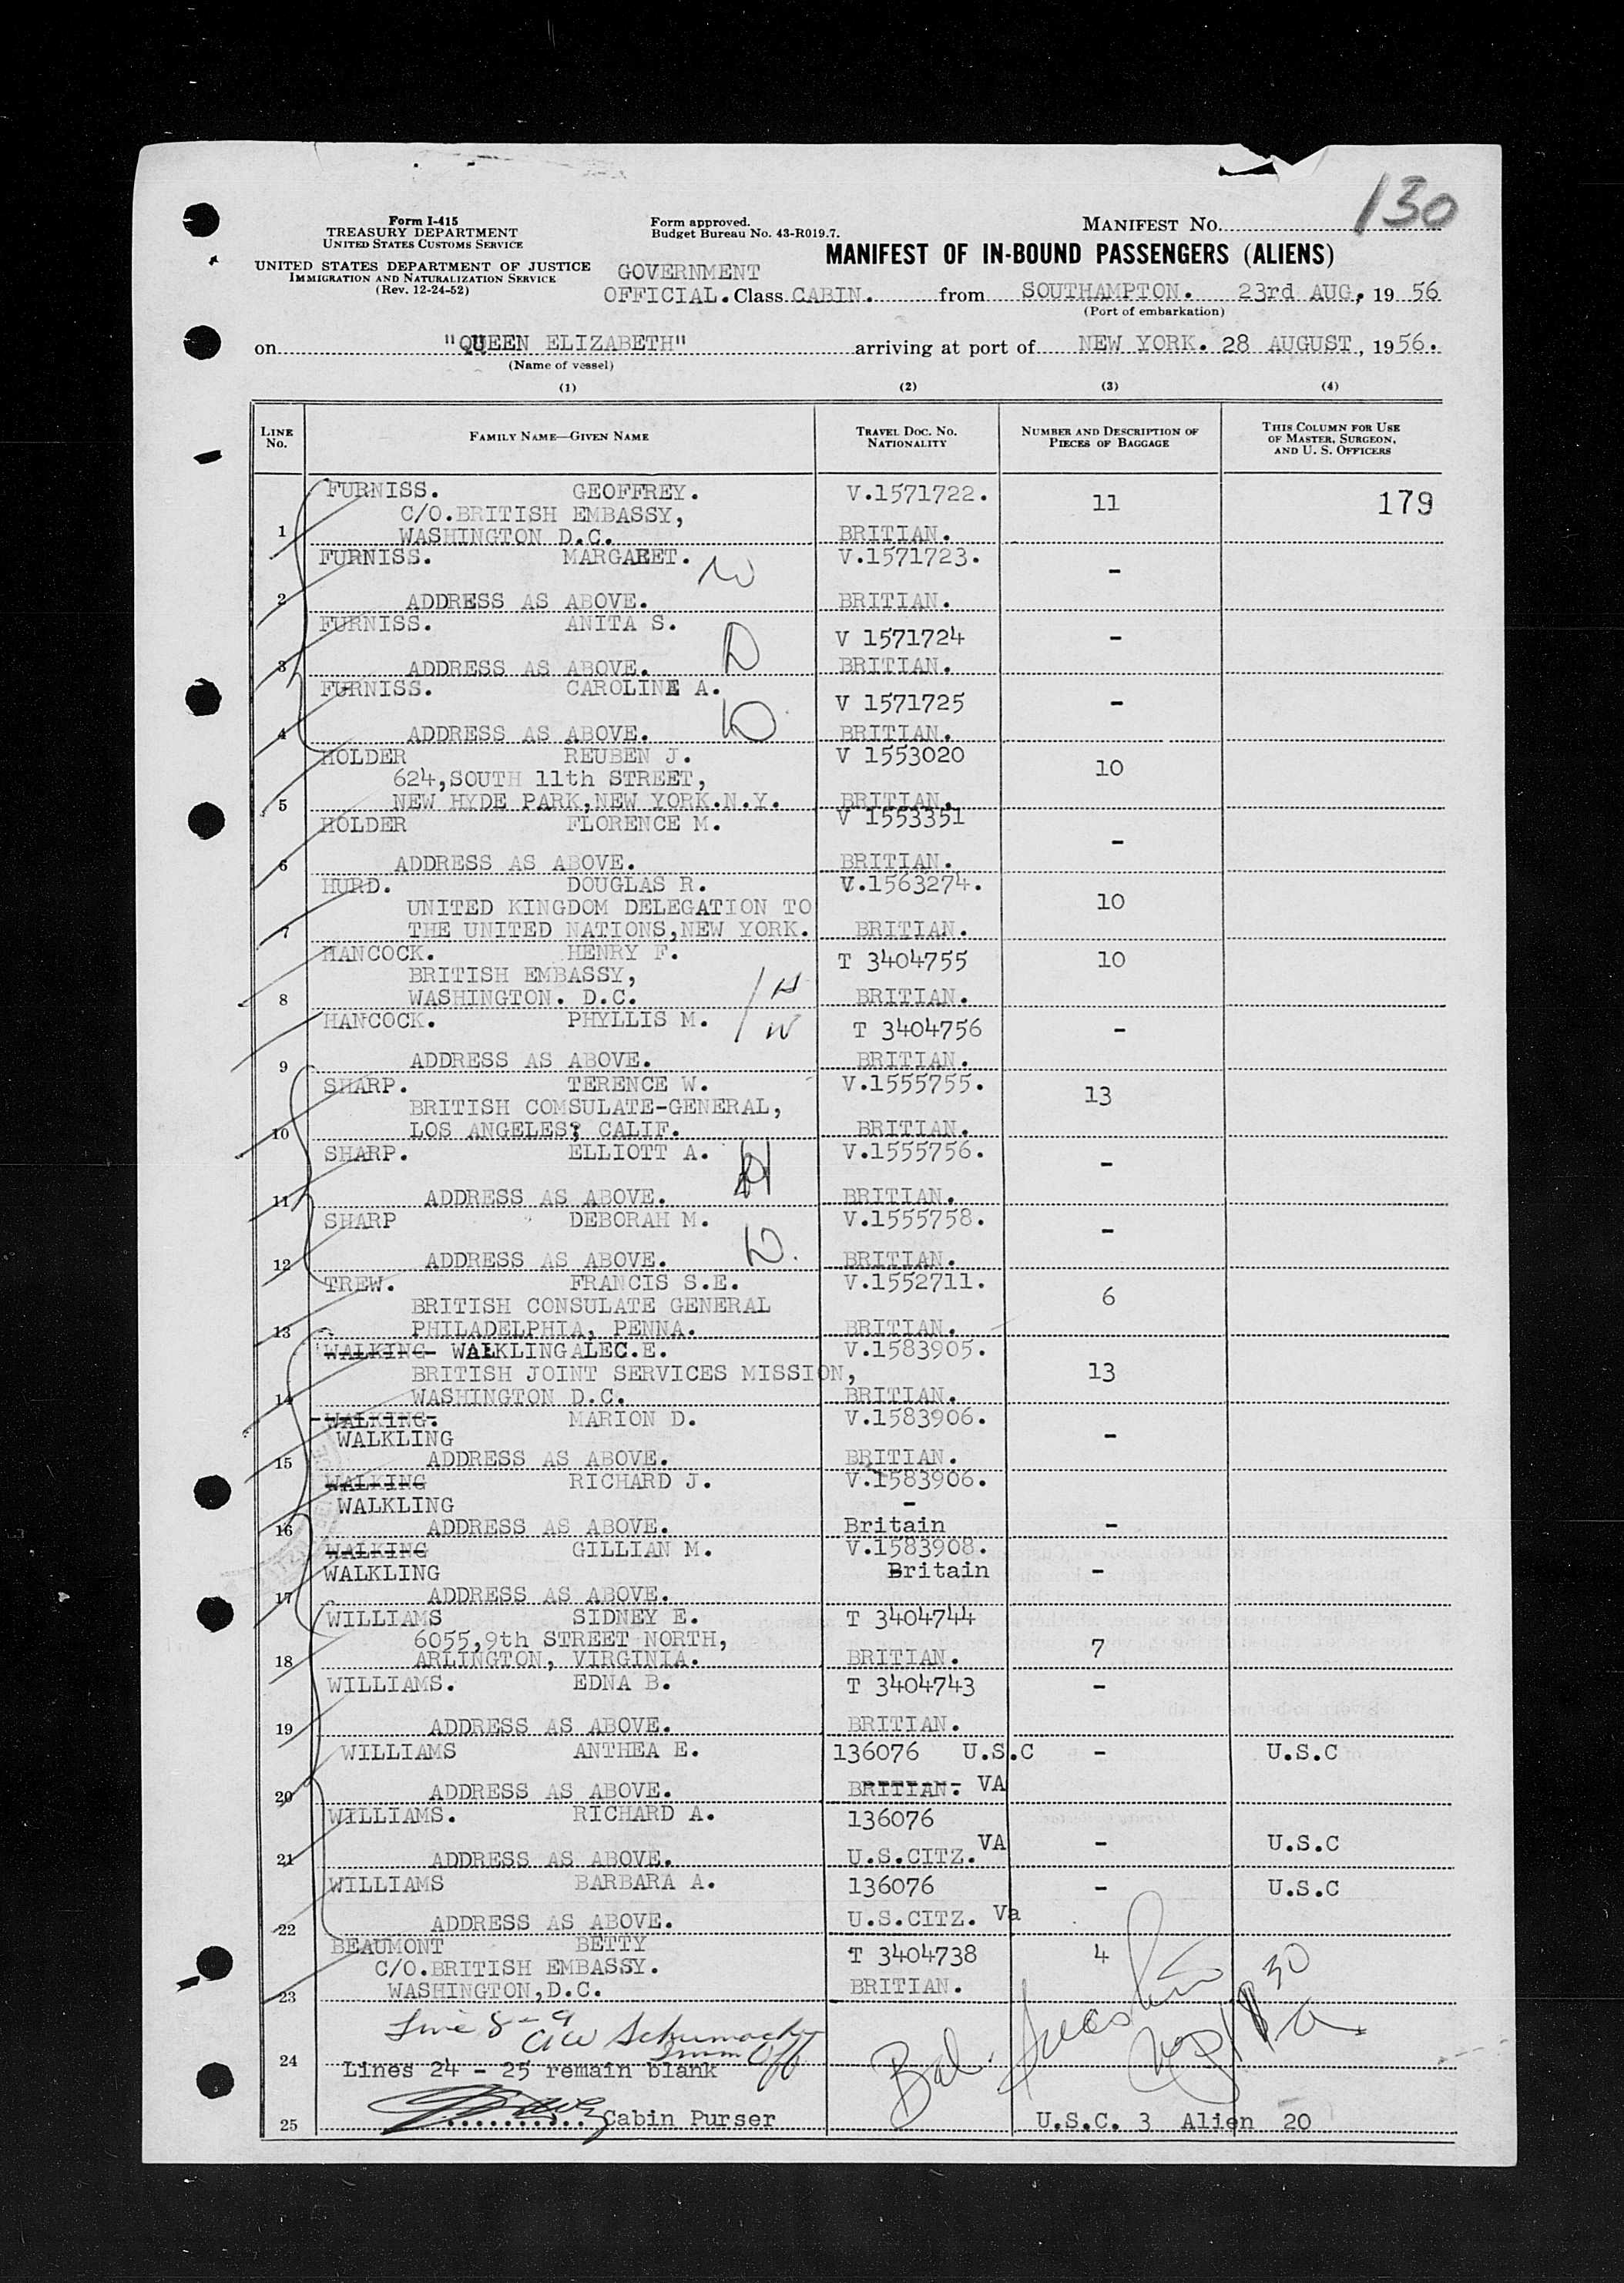 130
Form I-415
TREASURY DEPARTMENT
UNITED STATES CUSTOMS SERVICE
Form approved.
Budget Bureau No. 43-R019.7.
MANIFEST No.
UNITED STATES DEPARTMENT OF JUSTICE
IMMIGRATION AND NATURALIZATION SERVICE
(Rev. 12-24-52)
MANIFEST OF IN-BOUND PASSENGERS (ALIENS)
GOVERNMENT
OFFICIAL. Class CABIN. from SOUTHAMPTON. 23rd AUG, 19 56
(Port of embarkation)
on "QUEEN ELIZABETH" arriving at port of NEW YORK. 28 AUGUST, 1956.
(Name of vessel)
(1) (2) (3) (4)
LINE No. FAMILY NAME—GIVEN NAME TRAVEL DOC. NO. NATIONALITY NUMBER AND DESCRIPTION OF PIECES OF BAGGAGE THIS COLUMN FOR USE OF MASTER, SURGEON, AND U. S. OFFICERS
FURNISS. GEOFFREY. V.1571722. 11 179
C/O.BRITISH EMBASSY,
1 WASHINGTON D.C. BRITIAN.
FURNISS. MARGARET. W V.1571723. -
2 ADDRESS AS ABOVE. BRITIAN.
FURNISS. ANITA S. D V 1571724 -
3 ADDRESS AS ABOVE. BRITIAN.
FURNISS. CAROLINE A. D V 1571725 -
4 ADDRESS AS ABOVE. BRITIAN.
HOLDER REUBEN J. V 1553020 10
624,SOUTH 11th STREET,
5 NEW HYDE PARK,NEW YORK.N.Y. BRITIAN.
HOLDER FLORENCE M. V 1553351 -
6 ADDRESS AS ABOVE. BRITIAN.
HURD. DOUGLAS R. V.1563274. 10
UNITED KINGDOM DELEGATION TO
7 THE UNITED NATIONS,NEW YORK. BRITIAN.
HANCOCK. HENRY F. T 3404755 10
BRITISH EMBASSY, H
8 WASHINGTON. D.C. BRITIAN.
HANCOCK. PHYLLIS M. W T 3404756 -
9 ADDRESS AS ABOVE. BRITIAN.
SHARP. TERENCE W. V.1555755. 13
BRITISH COMSULATE-GENERAL,
10 LOS ANGELES, CALIF. BRITIAN.
SHARP. ELLIOTT A. V.1555756. -
11 ADDRESS AS ABOVE. BRITIAN.
SHARP DEBORAH M. V.1555758. -
12 ADDRESS AS ABOVE. D. BRITIAN.
TREW. FRANCIS S.E. V.1552711. 6
BRITISH CONSULATE GENERAL
13 PHILADELPHIA, PENNA. BRITIAN.
WALKING- WALKLING ALEC.E. V.1583905. 13
BRITISH JOINT SERVICES MISSION,
14 WASHINGTON D.C. BRITIAN.
WALKING. MARION D. V.1583906. -
WALKLING
15 ADDRESS AS ABOVE. BRITIAN.
WALKING RICHARD J. V.1583906.
WALKLING -
16 ADDRESS AS ABOVE. Britain -
WALKING GILLIAN M. V.1583908.
WALKLING Britain -
17 ADDRESS AS ABOVE.
WILLIAMS SIDNEY E. T 3404744
6055,9th STREET NORTH, 7
18 ARLINGTON, VIRGINIA. BRITIAN.
WILLIAMS. EDNA B. T 3404743 -
19 ADDRESS AS ABOVE. BRITIAN.
WILLIAMS ANTHEA E. 136076 U.S.C - U.S.C
20 ADDRESS AS ABOVE. BRITIAN. VA
WILLIAMS. RICHARD A. 136076
VA - U.S.C
21 ADDRESS AS ABOVE. U.S.CITZ.
WILLIAMS BARBARA A. 136076 - U.S.C
22 ADDRESS AS ABOVE. U.S.CITZ. Va
BEAUMONT BETTY T 3404738 4
C/O.BRITISH EMBASSY.
23 WASHINGTON,D.C. BRITIAN.
Line 8-9
Imm Off
24 Lines 24 - 25 remain blank
25 Cabin Purser U.S.C. 3 Alien 20